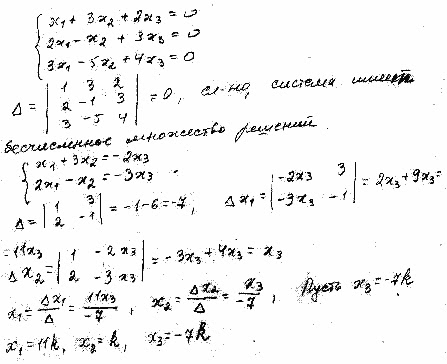 x₁ + 3x₂ + 2x₃ = 0
2x₁ - x₂ + 3x₃ = 0
3x₁ - 5x₂ + 4x₃ = 0
Δ = | 1 3 2 |
| 2 -1 3 | = 0, сл-но, система имеет
| 3 -5 4 |
бесчисленное множество решений.
x₁ + 3x₂ = -2x₃
2x₁ - x₂ = -3x₃
Δ = | 1 3 | = -1-6 = -7, Δx₁ = | -2x₃ 3 | = 2x₃ + 9x₃ =
| 2 -1 | | -3x₃ -1 |
= 11x₃
Δx₂ = | 1 -2x₃ | = -3x₃ + 4x₃ = x₃
| 2 -3x₃ |
x₁ = Δx₁/Δ = 11x₃/-7, x₂ = Δx₂/Δ = x₃/-7, Пусть x₃ = -7k
x₁ = 11k, x₂ = k, x₃ = -7k